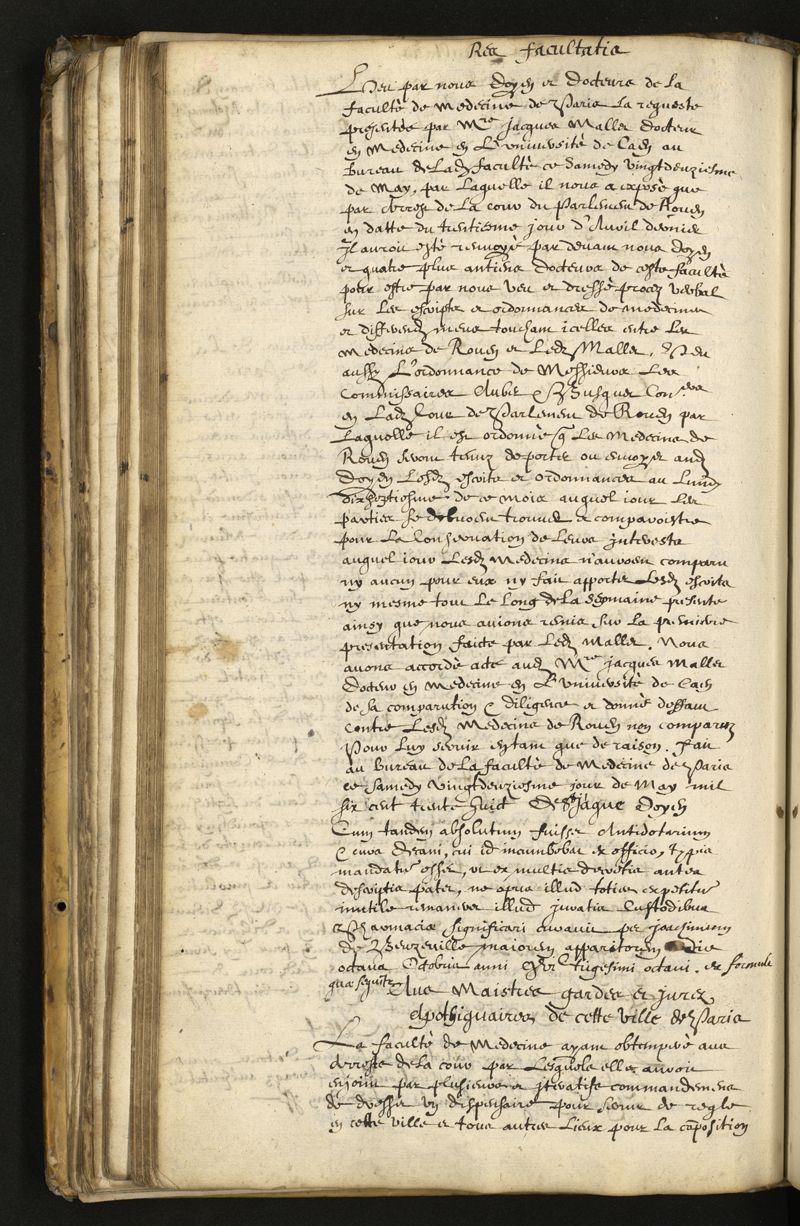 Res facultatis
Veu par nous Doyen et Docteurs de la
faculté de Medecine de Paris La requeste
presentée par Mre Jacques Mallet Docteur
en Medecine en L'université de Caen au
bureau de Ladᵗ faculté ce samedy vingtdeuziesme
de May, par Laquelle il nous a exposé que
par Arrest de La cour du Parlement de Rouen
en datte du trentiesme jour d'Avril dernier
Il auroit esté renvoyé par devant nous Doyen
et quatre plus antiens docteurs de ceste faculté
pour estre par nous veu et dressé procez verbal
sur Les escripts et ordonnances de medecine
et differendz meus touchant icelles entre Les
Medecins de Rouen et Ledᵗ Mallet, Veu
aussy L'ordonnance de Messieurs Les
Commissaires Aubert & Busquet Conᵉʳˢ
en Ladᵗ Cour de Parlement de Rouen par
Laquelle il est ordonné q Les Medecins de
Rouen seront tenuz de porter ou envoyer audᵗ
Doyen Lesdᵗ escrits et ordonnances au Lundy
dixseptiesme de ce mois auquel iour Les
parties se debvoient trouver & comparoistre
pour La Conservation de Leurs interests
auquel iour Lesdᵗ Medecins n'auroient comparu
ny aucun pour eux ny fait apporter Lesdᵗ escrits
ny mesme tout Le Long de La sepmaine presente
ainsy que nous avions remis sur La premiere
presentation faicte par Ledᵗ Mallet. Nous
avons accordé acte audᵗ Mre Jacques Mallet
Docteur en Medecine en L'université de Caen
de sa comparution & diligence et donné deffaut
Contre Lesdᵗ Medecins de Rouen non comparuz
Pour Luy servir en tant que de raison. Fait
au bureau de La faculté de Medecine de Paris
ce samedy vingtdeuziesme jour de May mil
six cent trente huict Doyen
Cum tandem absolutum fuisset Antidotarium
& cura Decani, cui id incumbebat ex officio, typis
mandatu esset, ut ex multis decretis antea
descriptis patet, ne opus illud toties expetitu
inutile remaneret illud juratis Custodibus
Pharmaciæ significari curavit per Joachimum
de Beuzeville maiorem apparitorem die
octava Octobris anni trigesimi octavi, ex formulâ
quæ sequitr Aux Maistres gardes et jurez
Apothiquaires de cette ville de Paris
La faculté de Medecine ayant obtemperé aux
Arrests de La cour par Lesquels elle auroit
enjoint par plusieurs et iteratifs commandemens
de dresser un dispensaire pour servir de regle
en cette ville et tous autres Lieux pour La coposition